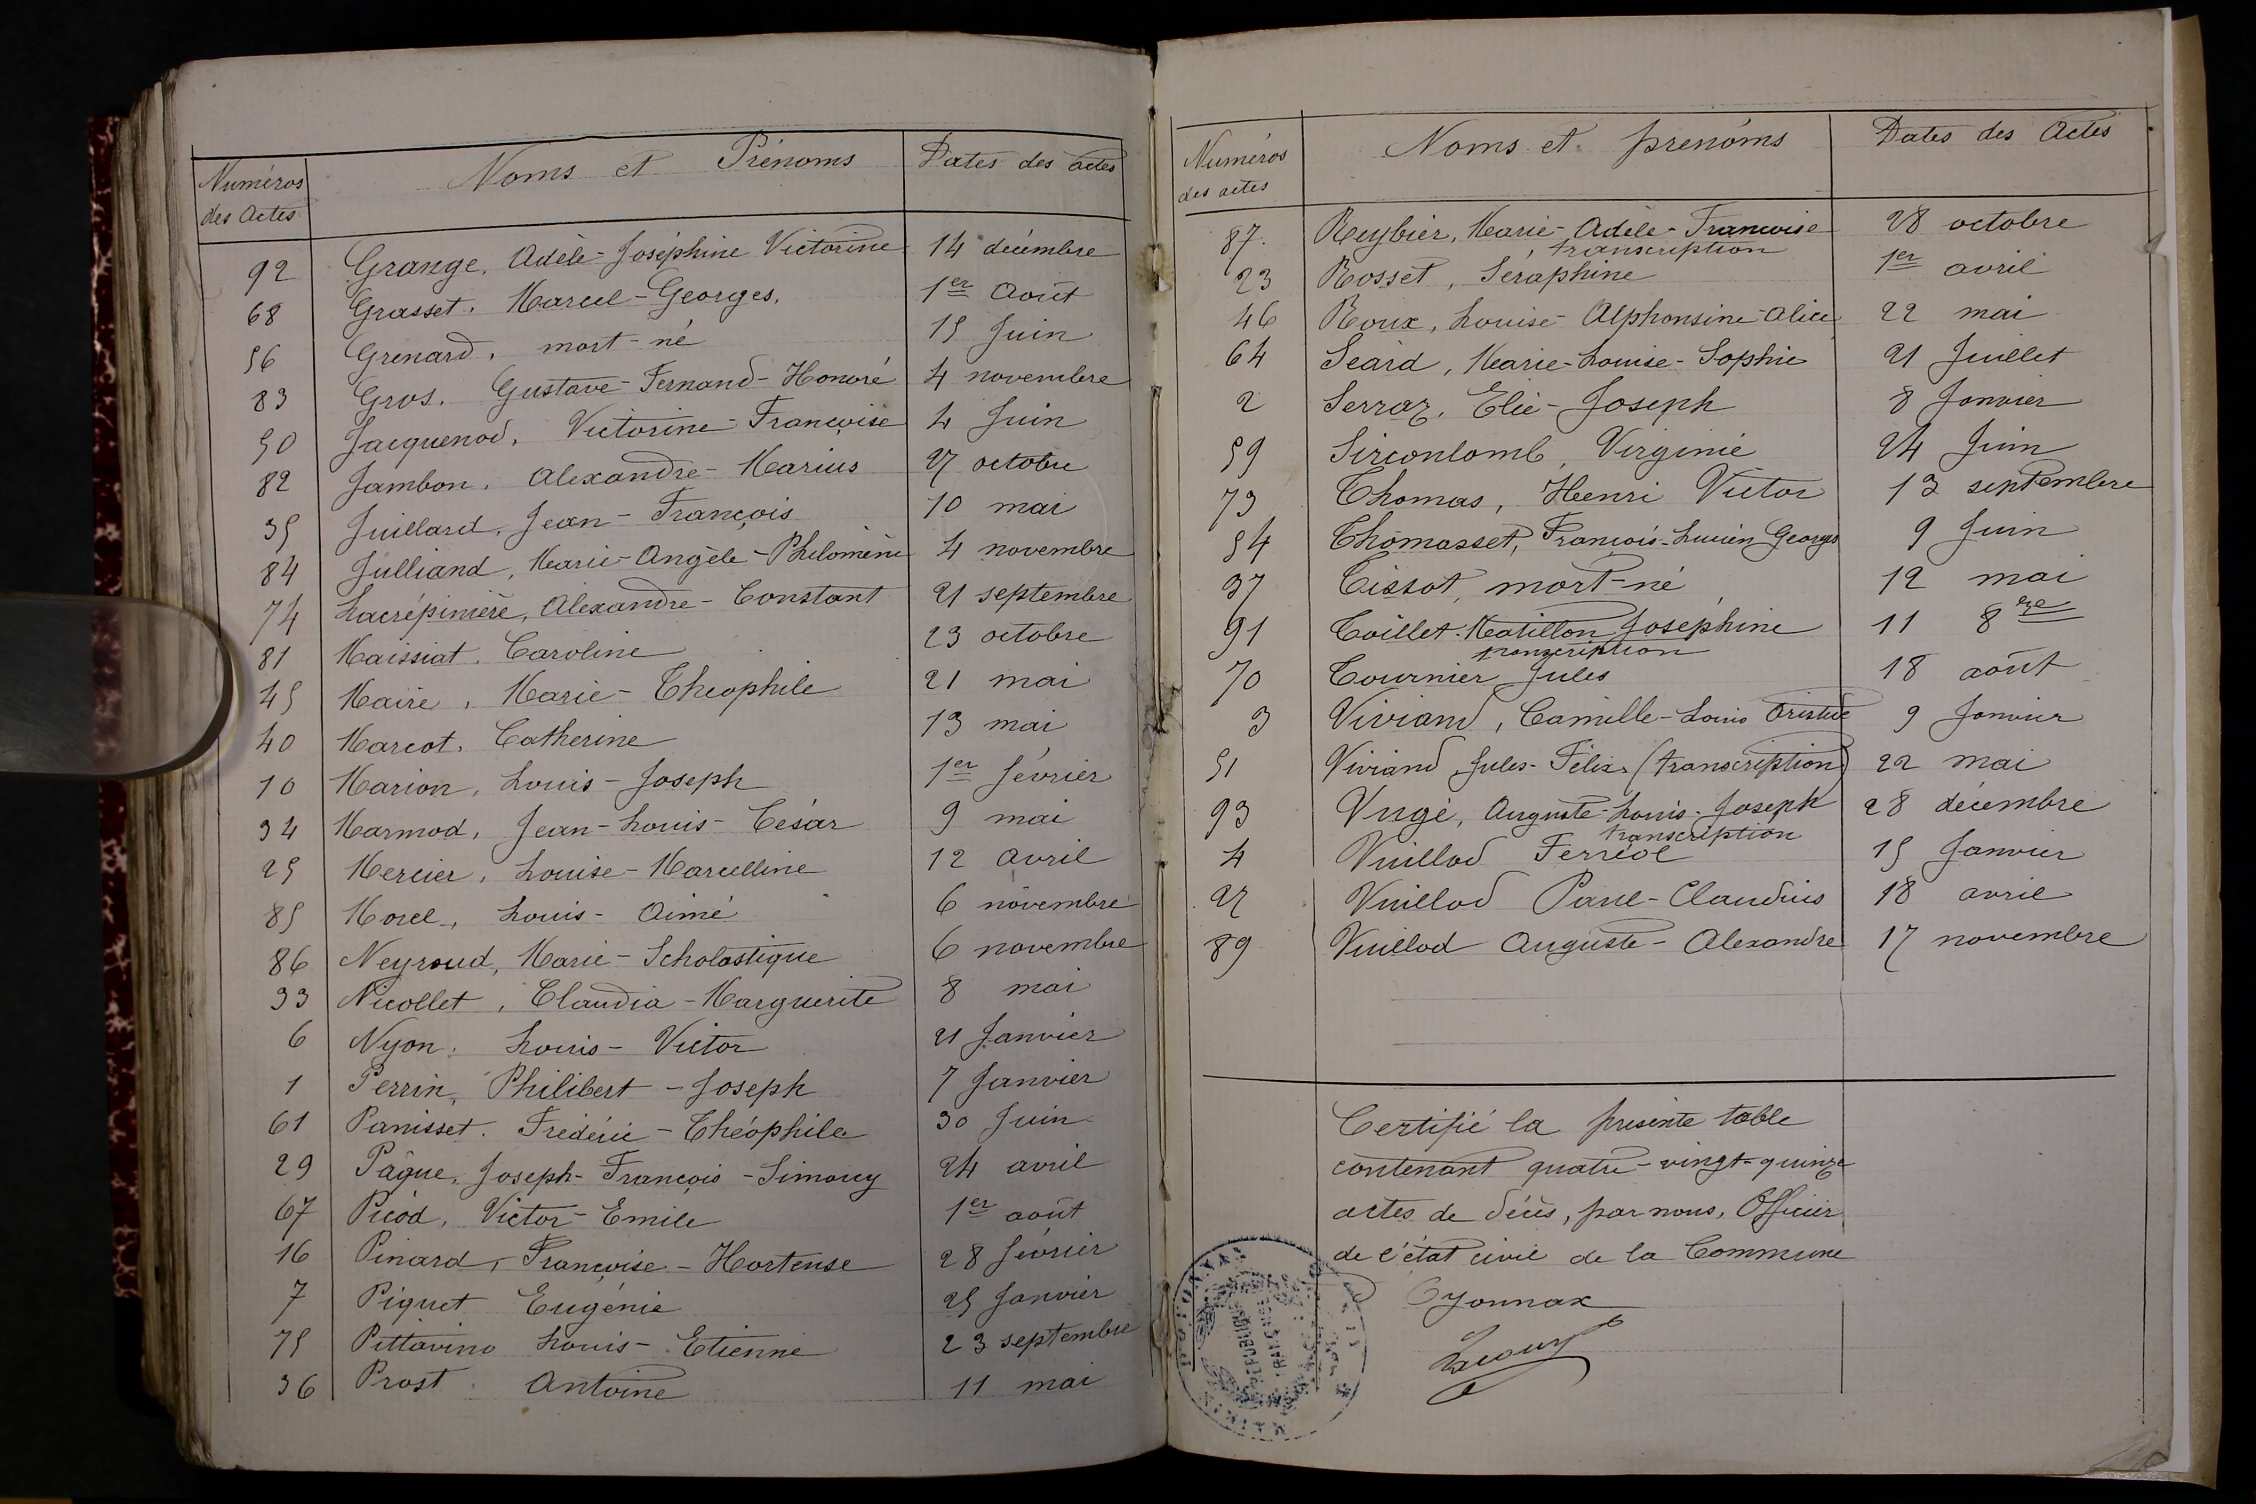 Numéros des Actes Noms et Prénoms Dates des actes
92 Grange, Adèle-Joséphine Victorine 14 décembre
68 Grasset, Marcel-Georges. 1er Août
56 Grenard, mort-né 15 Juin
83 Gros. Gustave-Fernand-Honoré 4 novembre
50 Jacquenod, Victorine-Françoise 4 Juin
82 Jambon, Alexandre-Marius 27 octobre
35 Juillard, Jean-François 10 mai
84 Julliand, Marie-Angèle-Philomène 4 novembre
74 Lacrépinière, Alexandre-Constant 21 septembre
81 Maissiat, Caroline 23 octobre
45 Maire, Marie-Théophile 21 mai
40 Marcot, Catherine 13 mai
10 Marion, Louis-Joseph 1er février
34 Marmod, Jean-Louis-César 9 mai
25 Mercier, Louise-Marcelline 12 avril
85 Morel, Louis-Aimé 6 novembre
86 Neyroud, Marie-Scholastique 6 novembre
33 Nicollet, Claudia-Marguerite 8 mai
6 Nyon, Louis-Victor 21 Janvier
1 Perrin, Philibert-Joseph 7 Janvier
61 Panisset. Frédéric-Théophile 30 Juin
29 Pâque, Joseph-François-Simouy 24 avril
67 Picod, Victor-Emile 1er août
16 Pinard, Françoise-Hortense 28 février
7 Piquet Eugénie 25 Janvier
75 Pittavino Louis-Etienne 23 septembre
36 Prost Antoine 11 mai
Numéros des actes Noms et prénoms Dates des Actes
87. Reybier, Marie-Adèle-Françoise 28 octobre
transcription
23 Rosset, Séraphine 1er avril
46 Roux, Louise-Alphonsine-Alice 22 mai
64 Séard, Marie-Louise-Sophie 21 Juillet
2 Serraz, Elie-Joseph 8 Janvier
59 Sirconlomb, Virginie 24 Juin
73 Thomas, Henri Victor 13 septembre
54 Thomasset, François-Lucien Georges 9 Juin
37 Tissot, mort-né 12 mai
91 Toillet-Matillon Joséphine 11 8bre
transcription
70 Tournier Jules 18 août
3 Viviand, Camille-Louis Aristide 9 Janvier
51 Viviand Jules-Félix (transcription) 22 mai
93 Vugé, Auguste-Louis-Joseph 28 décembre
transcription
4 Vuillod Ferréol 15 Janvier
27 Vuillod Paul-Claudius 18 avril
89 Vuillod Auguste-Alexandre 17 novembre
Certifié la présente table
contenant quatre-vingt-quinze
actes de décès, par nous, Officier
de l'état civil de la Commune
D'Oyonnax